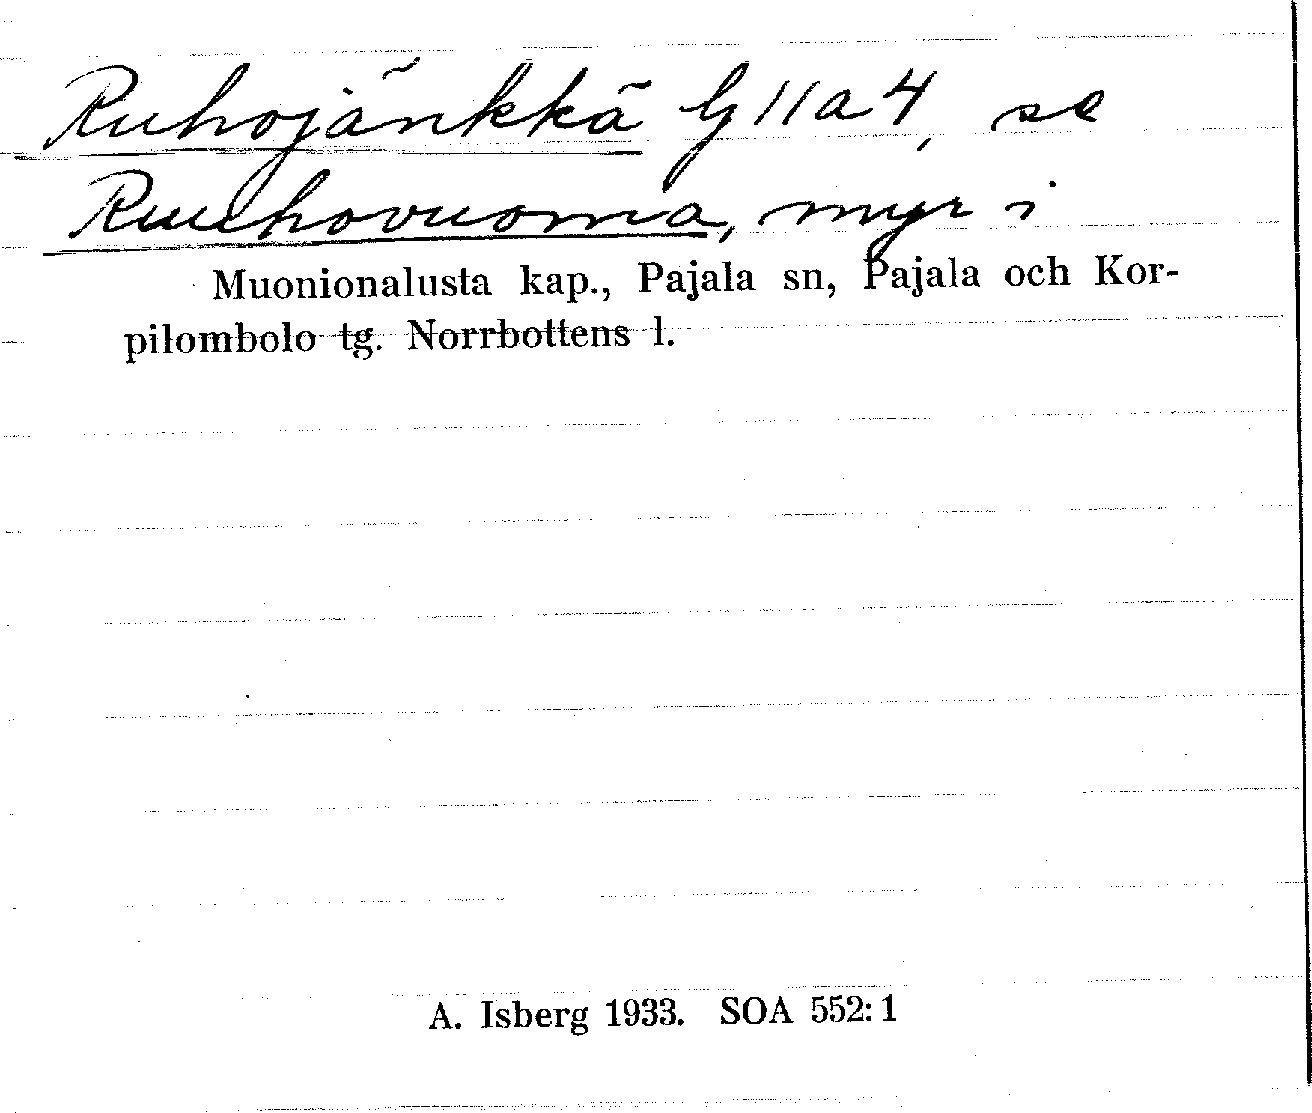 Ruhojänkkä G 11 a 4, se
Ruuhovuoma, myr i
Muonionalusta kap., Pajala sn, Pajala och Kor-
pilombolo tg. Norrbottens l.
A. Isberg 1933. SOA 552:1